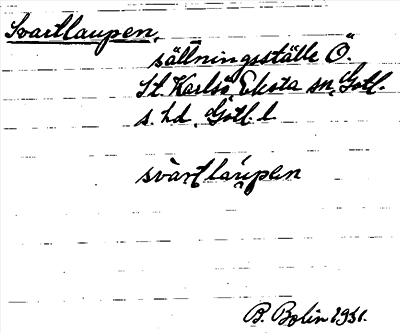 Svartlaupen,
sällningsställe Ö.
St. Karlsö, Eksta sn, Gotl.
s. hd, Gotl. l.
svartlaupen
B. Bolin 1931.